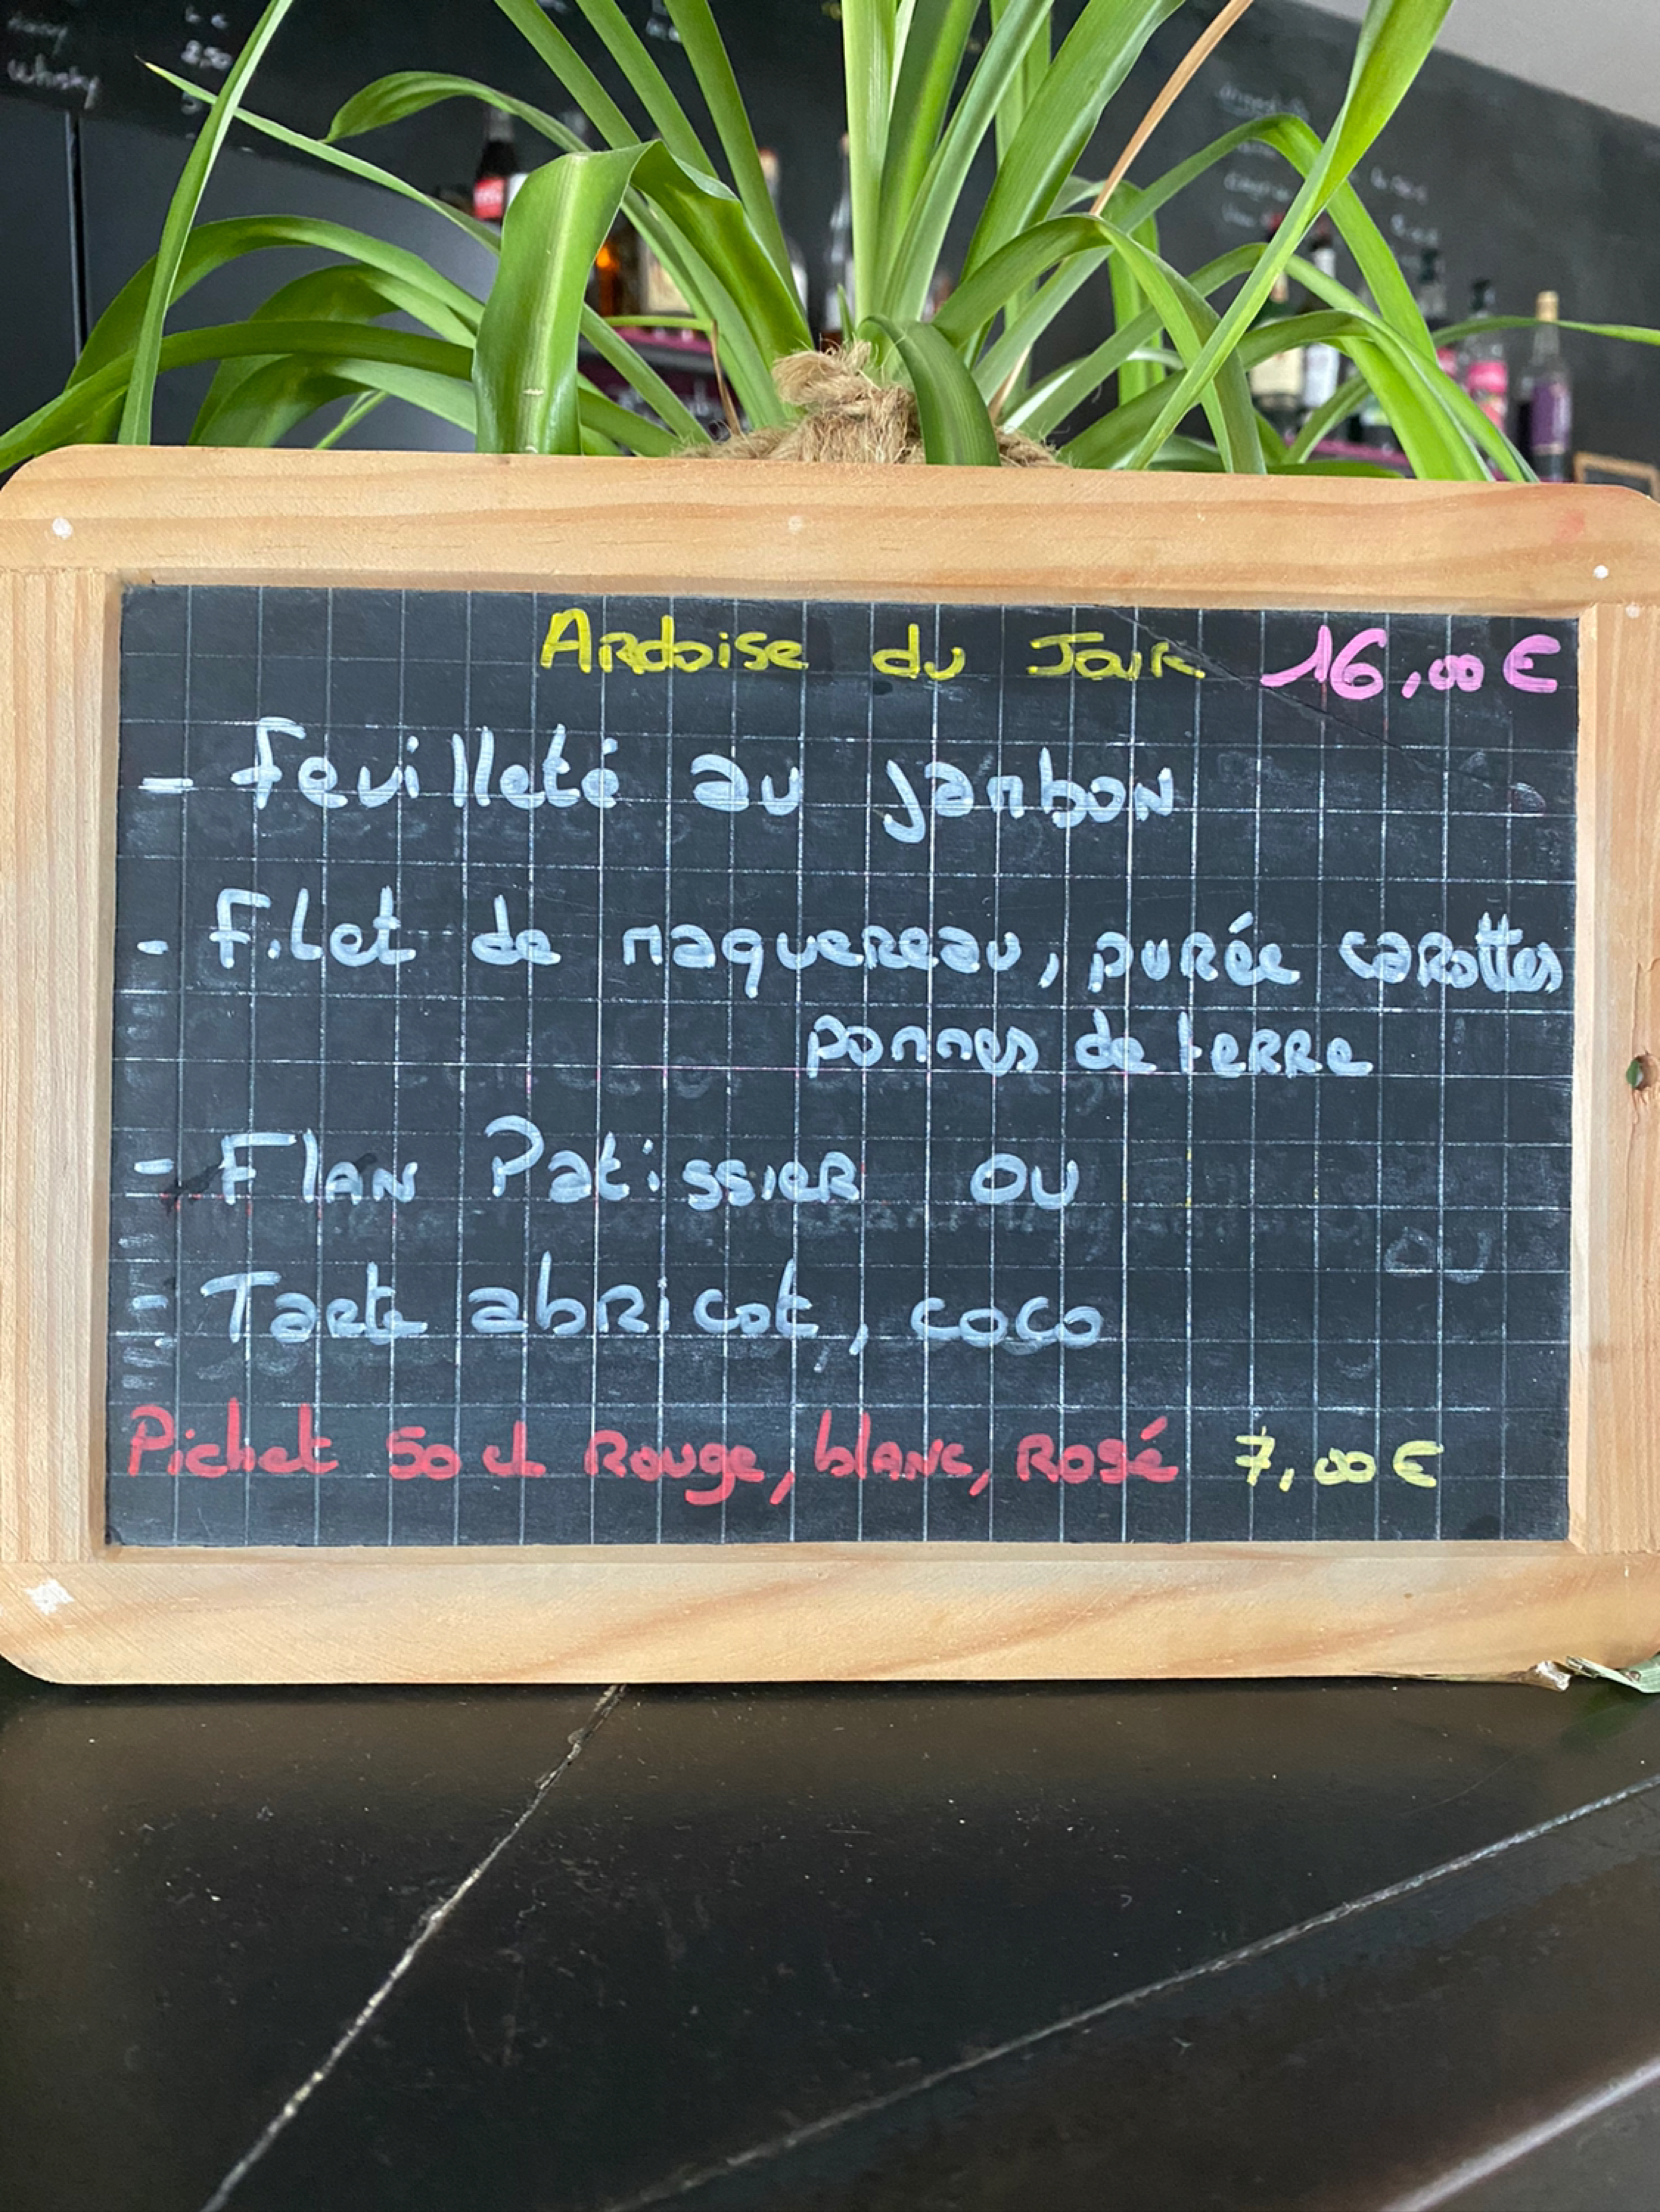 whisky
2,50
Ardoise du Jour 16,00 €
- feuilleté au jambon
- Filet de maquereau, purée carottes
pommes de terre
- Flan Patissier ou
- Tarte abricot, coco
Pichet 50 cl Rouge, blanc, Rosé 7,00 €